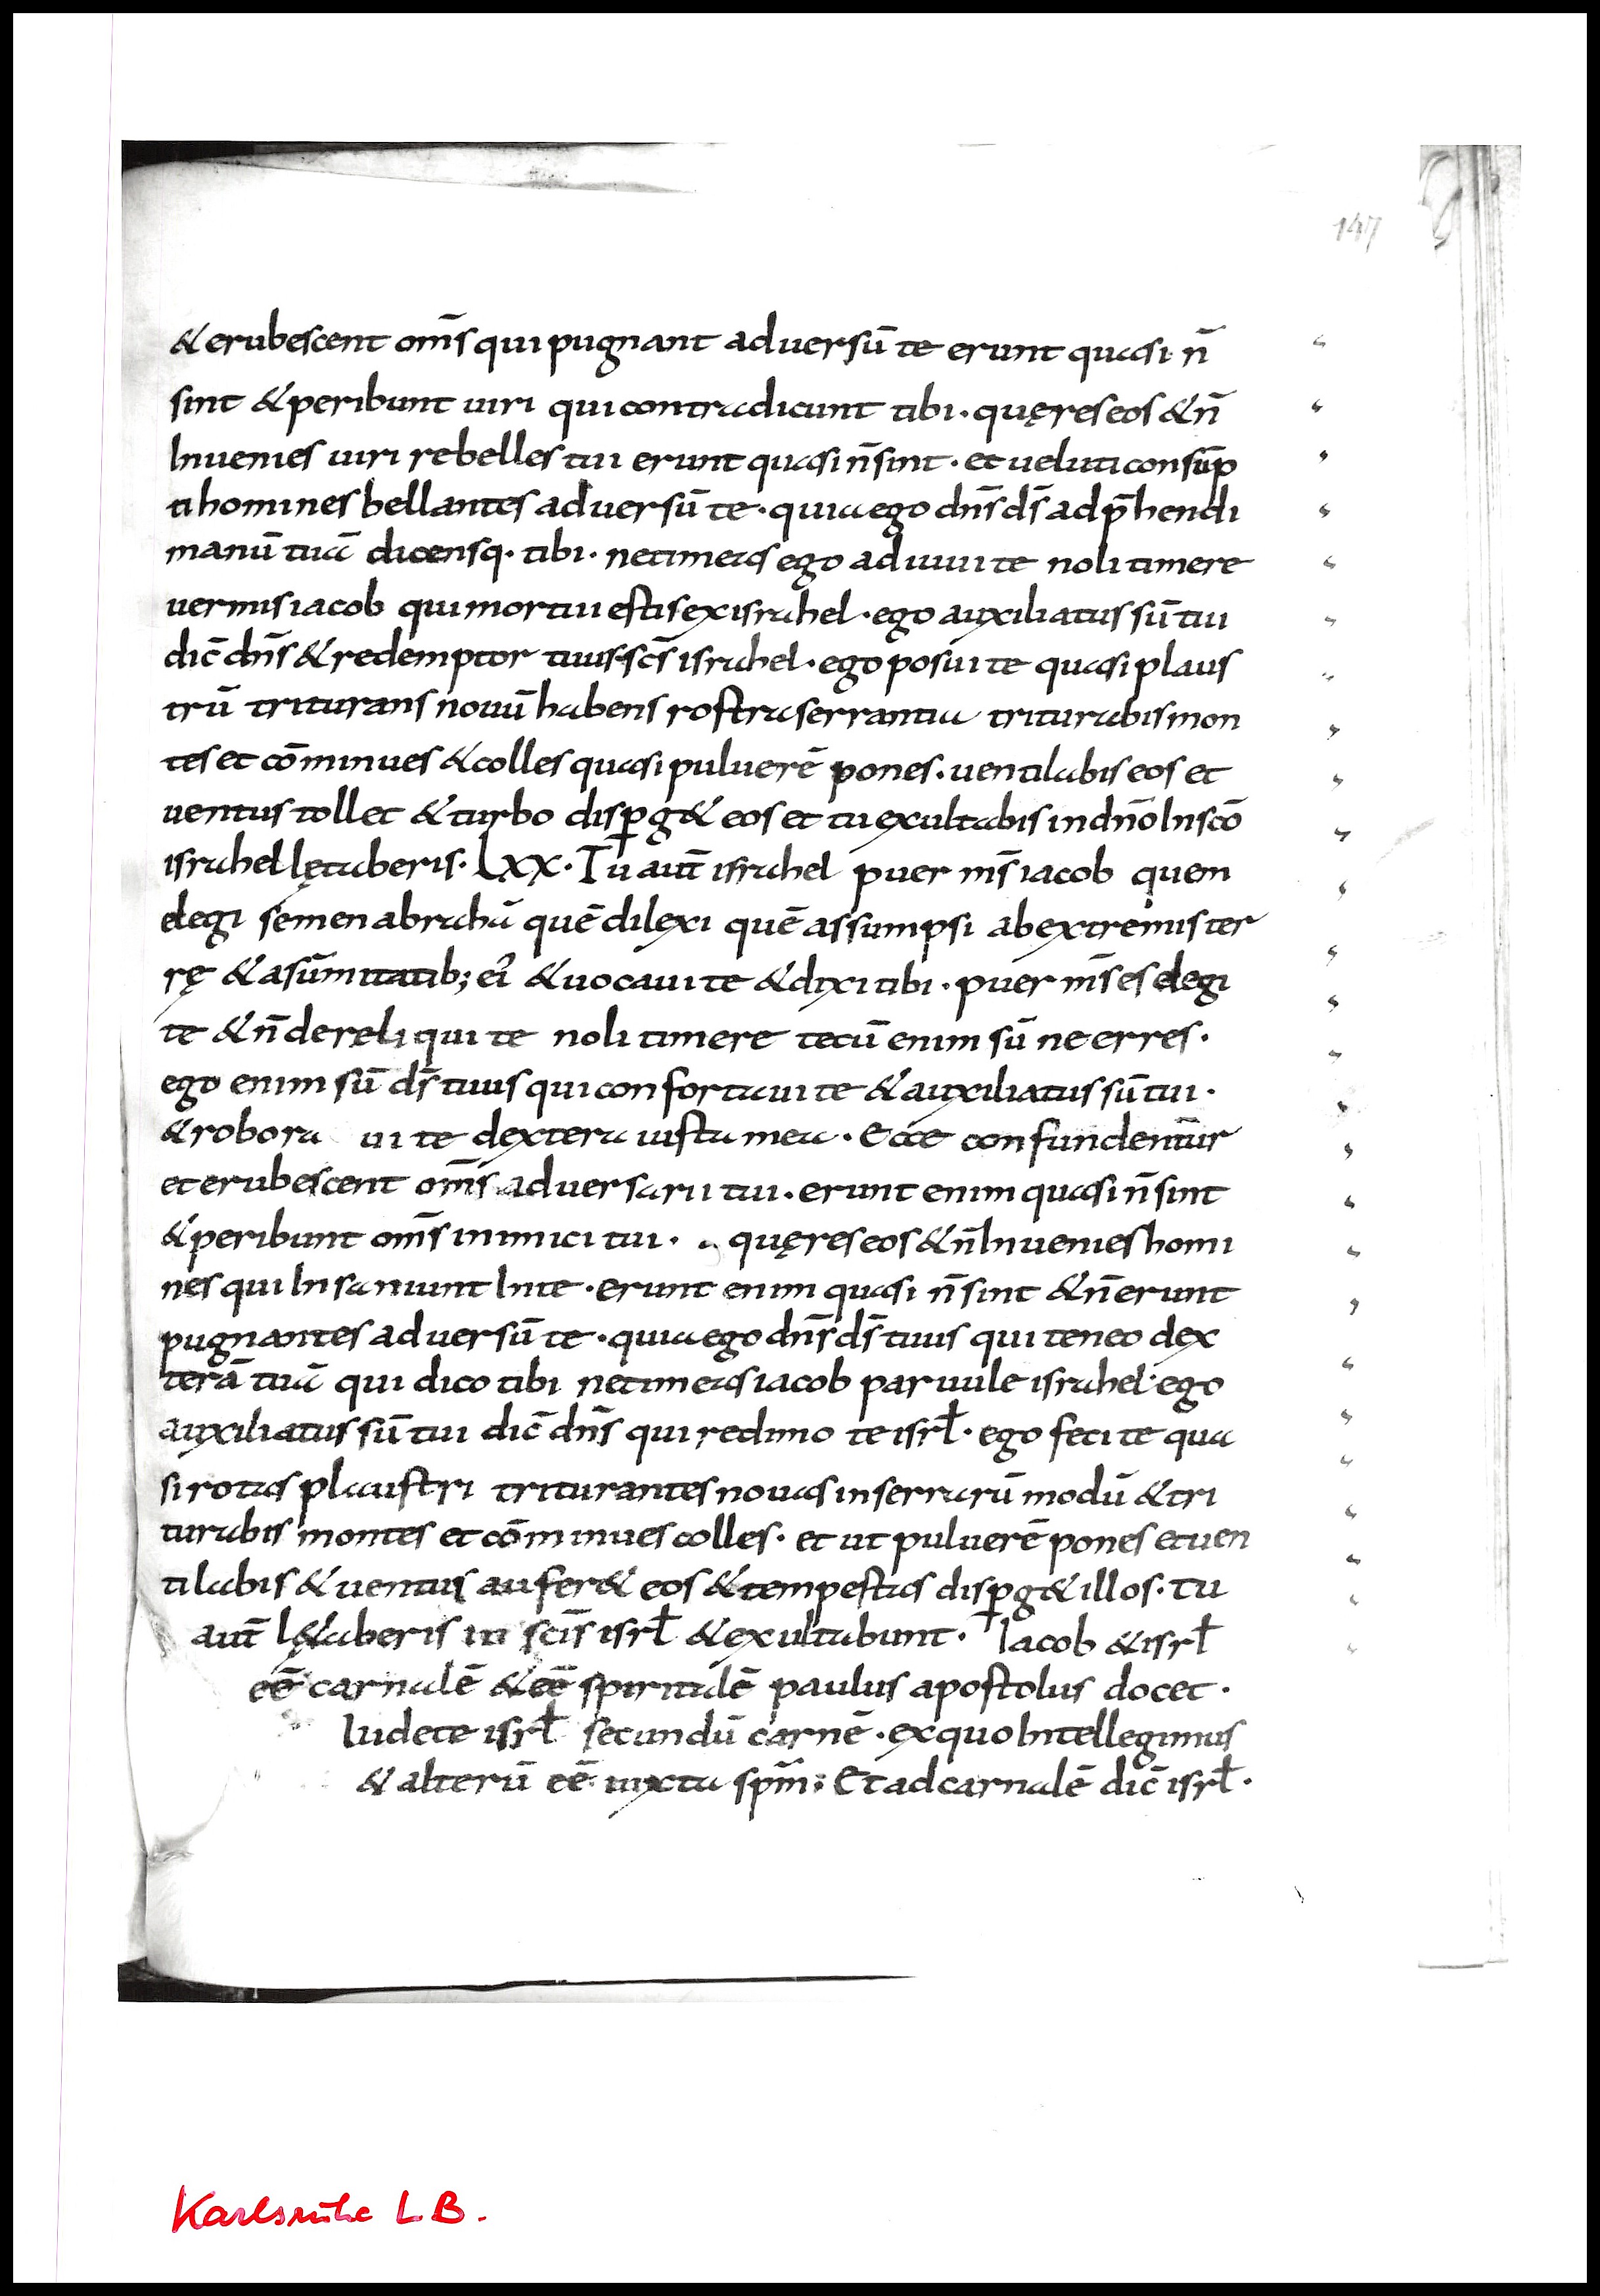 147
& erubescent om̄s qui pugnant aduersū te erunt quasi n̄
sint & peribunt uiri qui contradicunt tibi · quęres eos & n̄
Inuenies uiri rebelles tui erunt quasi n̄ sint · et ueluti consūp
ti homines bellantes aduersū te · quia ego dn̄s ds̄ adp̄hendi
manū tuā dicensq· tibi · ne timeas ego adiuui te noli timere
uermis iacob qui mortui estis ex israhel · ego auxiliatus sū tui
dic̄ dn̄s & redemptor tuus sc̄s israhel · ego posui te quasi plaus
trū triturans nouū habens rostra serrantia triturabis mon
tes et cōminues & colles quasi puluerē pones · uentilabis eos et
uentus tollet & turbo disꝑg& eos et tu exultabis in dn̄o In sc̄o
israhel lętaberis · Lxx · Tu aut̄ israhel puer ms̄ iacob quem
elegi semen abrahā quē dilexi quē assumpsi ab extremis ter
rę & a sūmitatib; ei᷒ & uocaui te & dixi tibi · puer ms̄ es elegi
te & n̄ dereliqui te noli timere tecū enim sū ne erres ·
ego enim sū ds̄ tuus qui confortaui te & auxiliatus sū tui ·
& robora ui te dextera iusta mea · Ecce confundent̄ur
et erubescent om̄s aduersarii tui · erunt enim quasi n̄ sint
& peribunt om̄s inimici tui · quęres eos & n̄ Inuenies homi
nes qui Insaniunt In te · erunt enim quasi n̄ sint & n̄ erunt
pugnantes aduersū te · quia ego dn̄s ds̄ tuus qui teneo dex
terā tuā qui dico tibi ne timeas iacob paruule israhel · ego
auxiliatus sū tui dic̄ dn̄s qui redimo te isrł · ego feci te qua
si rotas plaustri triturantes nouas in serrarū modū & tri
turabis montes et cōminues colles · et ut puluerē pones et uen
tilabis & uentus aufer& eos & tempestas disꝑg& illos · tu
aut̄ lę&aberis in sc̄is isrł & exultabunt · Iacob & isrł
eē carnalē & eē spiritalē paulus apostolus docet ·
Iudete isrł secundū carnē · ex quo Intellegimus
& alterū eē iuxta spm̄; Et ad carnalē dic̄ isrł ·
Karlsruhe L B.